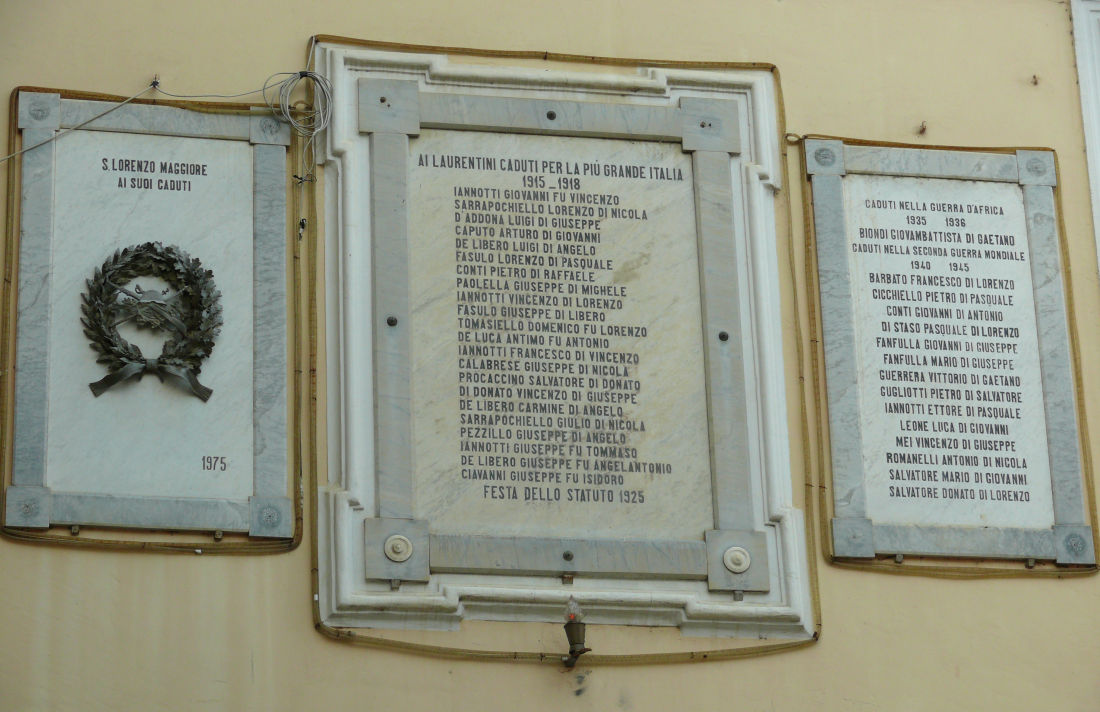 S. LORENZO MAGGIORE
AI SUOI CADUTI
1975
AI LAURENTINI CADUTI PER LA PIÙ GRANDE ITALIA
1915_1918
IANNOTTI GIOVANNI FU VINCENZO
SARRAPOCHIELLO LORENZO DI NICOLA
D'ADDONA LUIGI DI GIUSEPPE
CAPUTO ARTURO DI GIOVANNI
DE LIBERO LUIGI DI ANGELO
FASULO LORENZO DI PASQUALE
CONTI PIETRO DI RAFFAELE
PAOLELLA GIUSEPPE DI MIGHELE
IANNOTTI VINCENZO DI LORENZO
FASULO GIUSEPPE DI LIBERO
TOMASIELLO DOMENICO FU LORENZO
DE LUCA ANTIMO FU ANTONIO
IANNOTTI FRANCESCO DI VINCENZO
CALABRESE GIUSEPPE DI NICOLA
PROCACCINO SALVATORE DI DONATO
DI DONATO VINCENZO DI GIUSEPPE
DE LIBERO CARMINE DI ANGELO
SARRAPOCHIELLO GIULIO DI NICOLA
PEZZILLO GIUSEPPE DI ANGELO
IANNOTTI GIUSEPPE FU TOMMASO
DE LIBERO GIUSEPPE FU ANGELANTONIO
CIAVANNI GIUSEPPE FU ISIDORO
FESTA DELLO STATUTO 1925
CADUTI NELLA GUERRA D'AFRICA
1935 1936
BIONDI GIOVAMBATTISTA DI GAETANO
CADUTI NELLA SECONDA GUERRA MONDIALE
1940 1945
BARBATO FRANCESCO DI LORENZO
CICCHIELLO PIETRO DI PASQUALE
CONTI GIOVANNI DI ANTONIO
DI STASO PASQUALE DI LORENZO
FANFULLA GIOVANNI DI GIUSEPPE
FANFULLA MARIO DI GIUSEPPE
GUERRERA VITTORIO DI GAETANO
GUGLIOTTI PIETRO DI SALVATORE
IANNOTTI ETTORE DI PASQUALE
LEONE LUCA DI GIOVANNI
MEI VINCENZO DI GIUSEPPE
ROMANELLI ANTONIO DI NICOLA
SALVATORE MARIO DI GIOVANNI
SALVATORE DONATO DI LORENZO